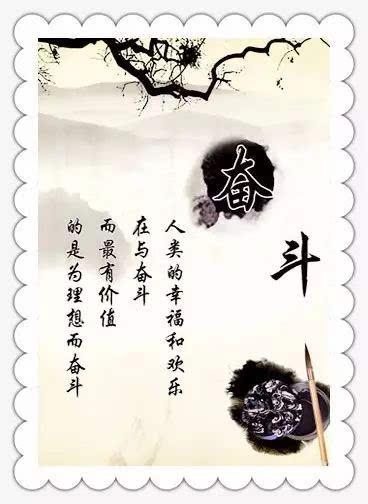 奋斗
人类的幸福和欢乐
在与奋斗
而最有价值
的是为理想而奋斗